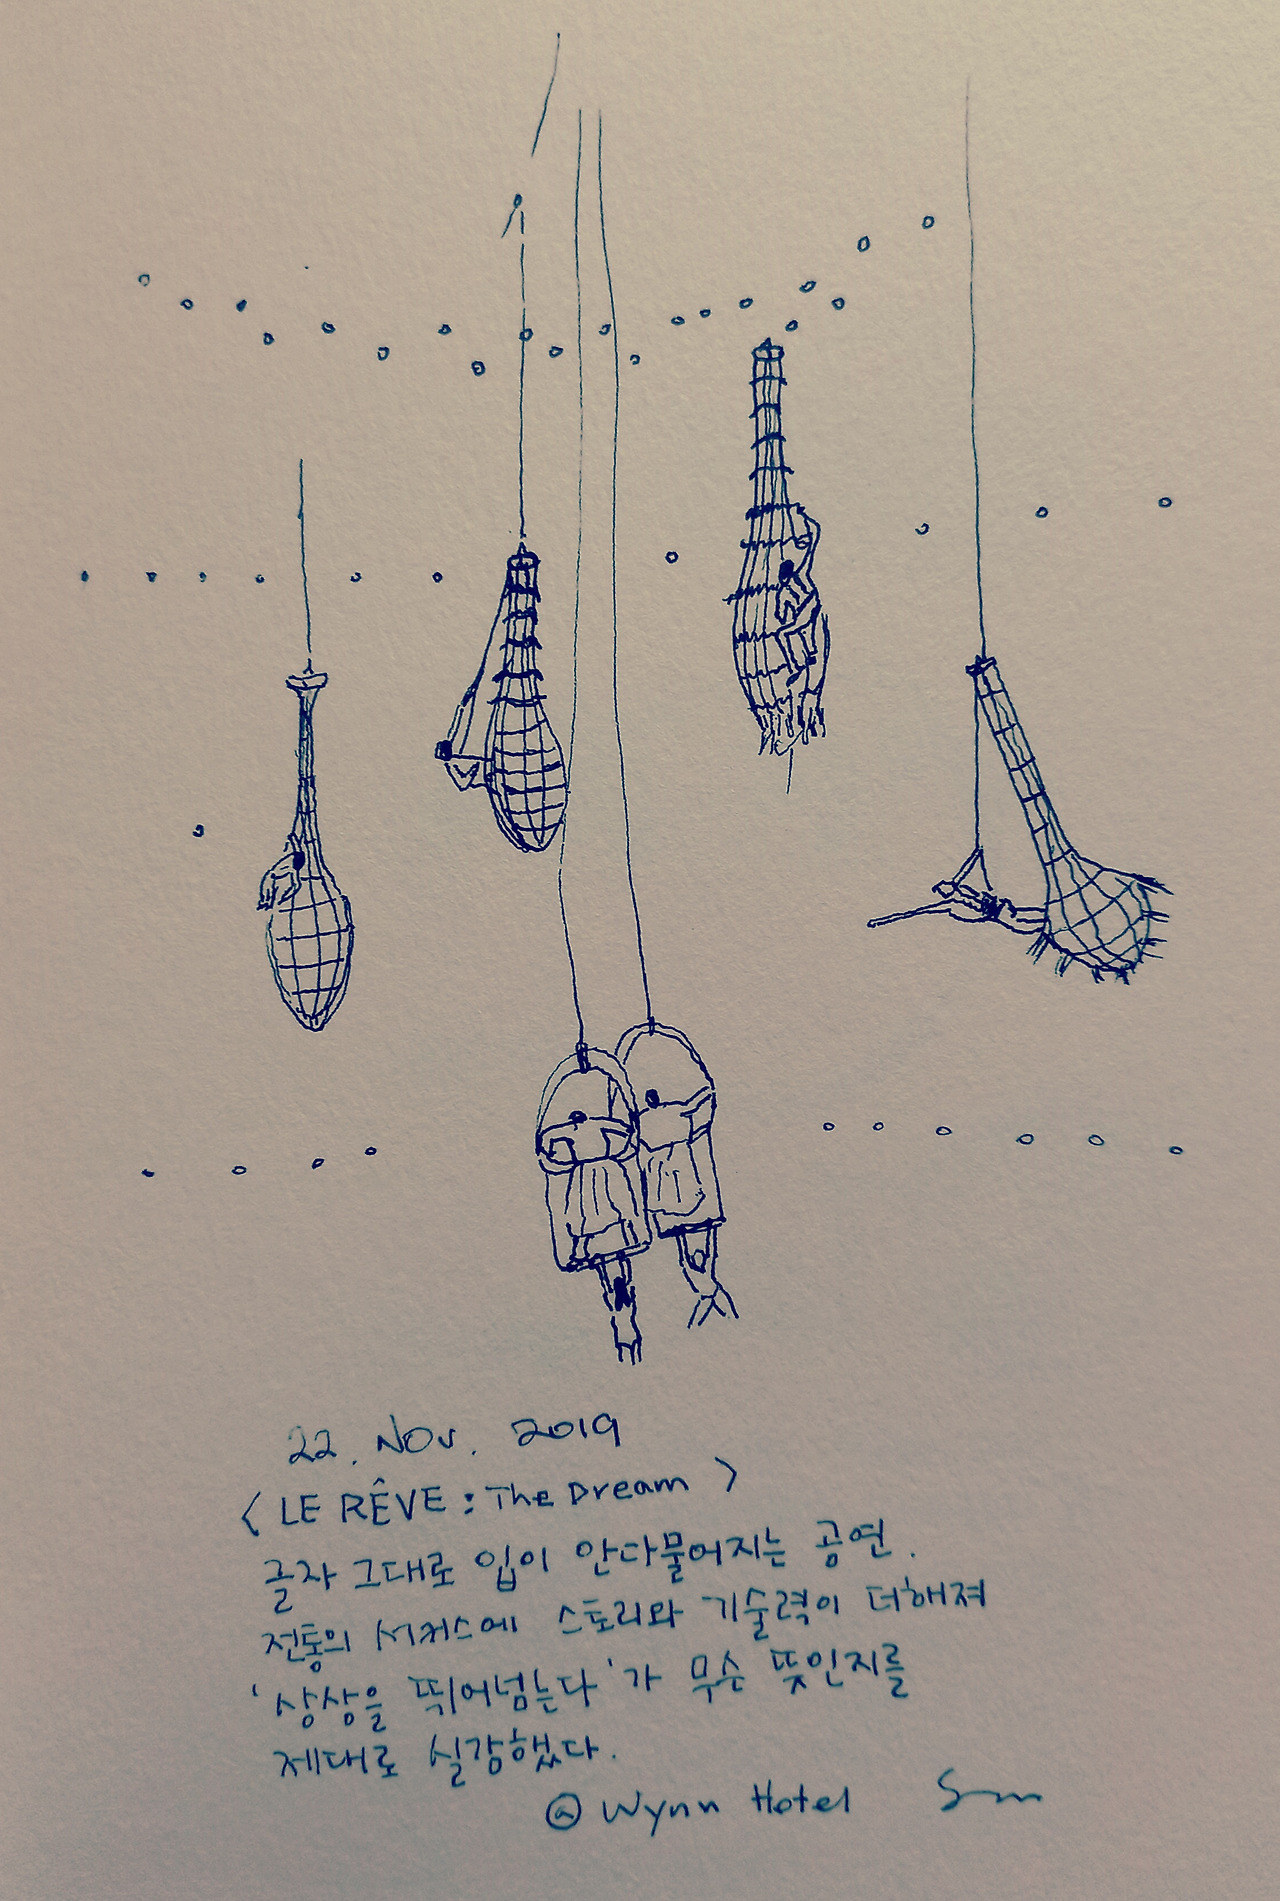 22. Nov. 2019
< LE RÊVE : The Dream >
글자 그대로 입이 안다물어지는 공연.
전통의 서커스에 스토리와 기술력이 더해져
'상상을 뛰어넘는다'가 무슨 뜻인지를
제대로 실감했다.
@ Wynn Hotel